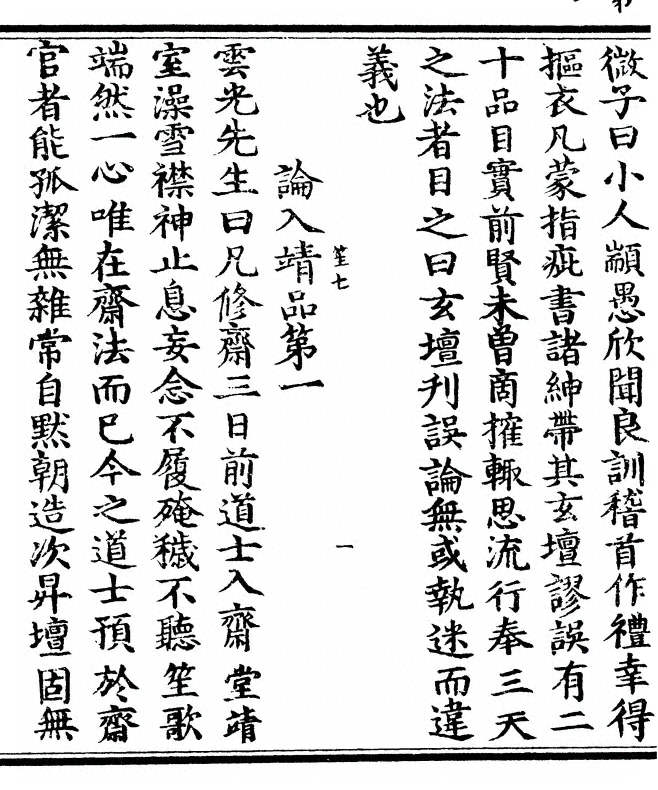 微子曰小人顓愚欣聞良訓稽首作禮幸得
摳衣凡蒙指疵書諸紳帶其玄壇謬誤有二
十品目實前賢未曾商搉輙思流行奉三天
之法者目之曰玄壇刋誤論無或執迷而違
義也
笙七 一
論入靖品第一
雲光先生曰凡修齋三日前道士入齋堂靖
室澡雪襟神止息妄念不履殗穢不聽笙歌
端然一心唯在齋法而已今之道士預於齋
官者能孤潔無雜常自黙朝造次昇壇固無